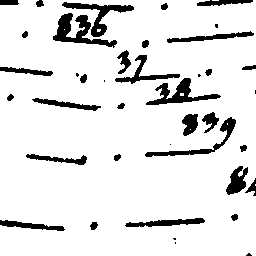 836
37
38
839